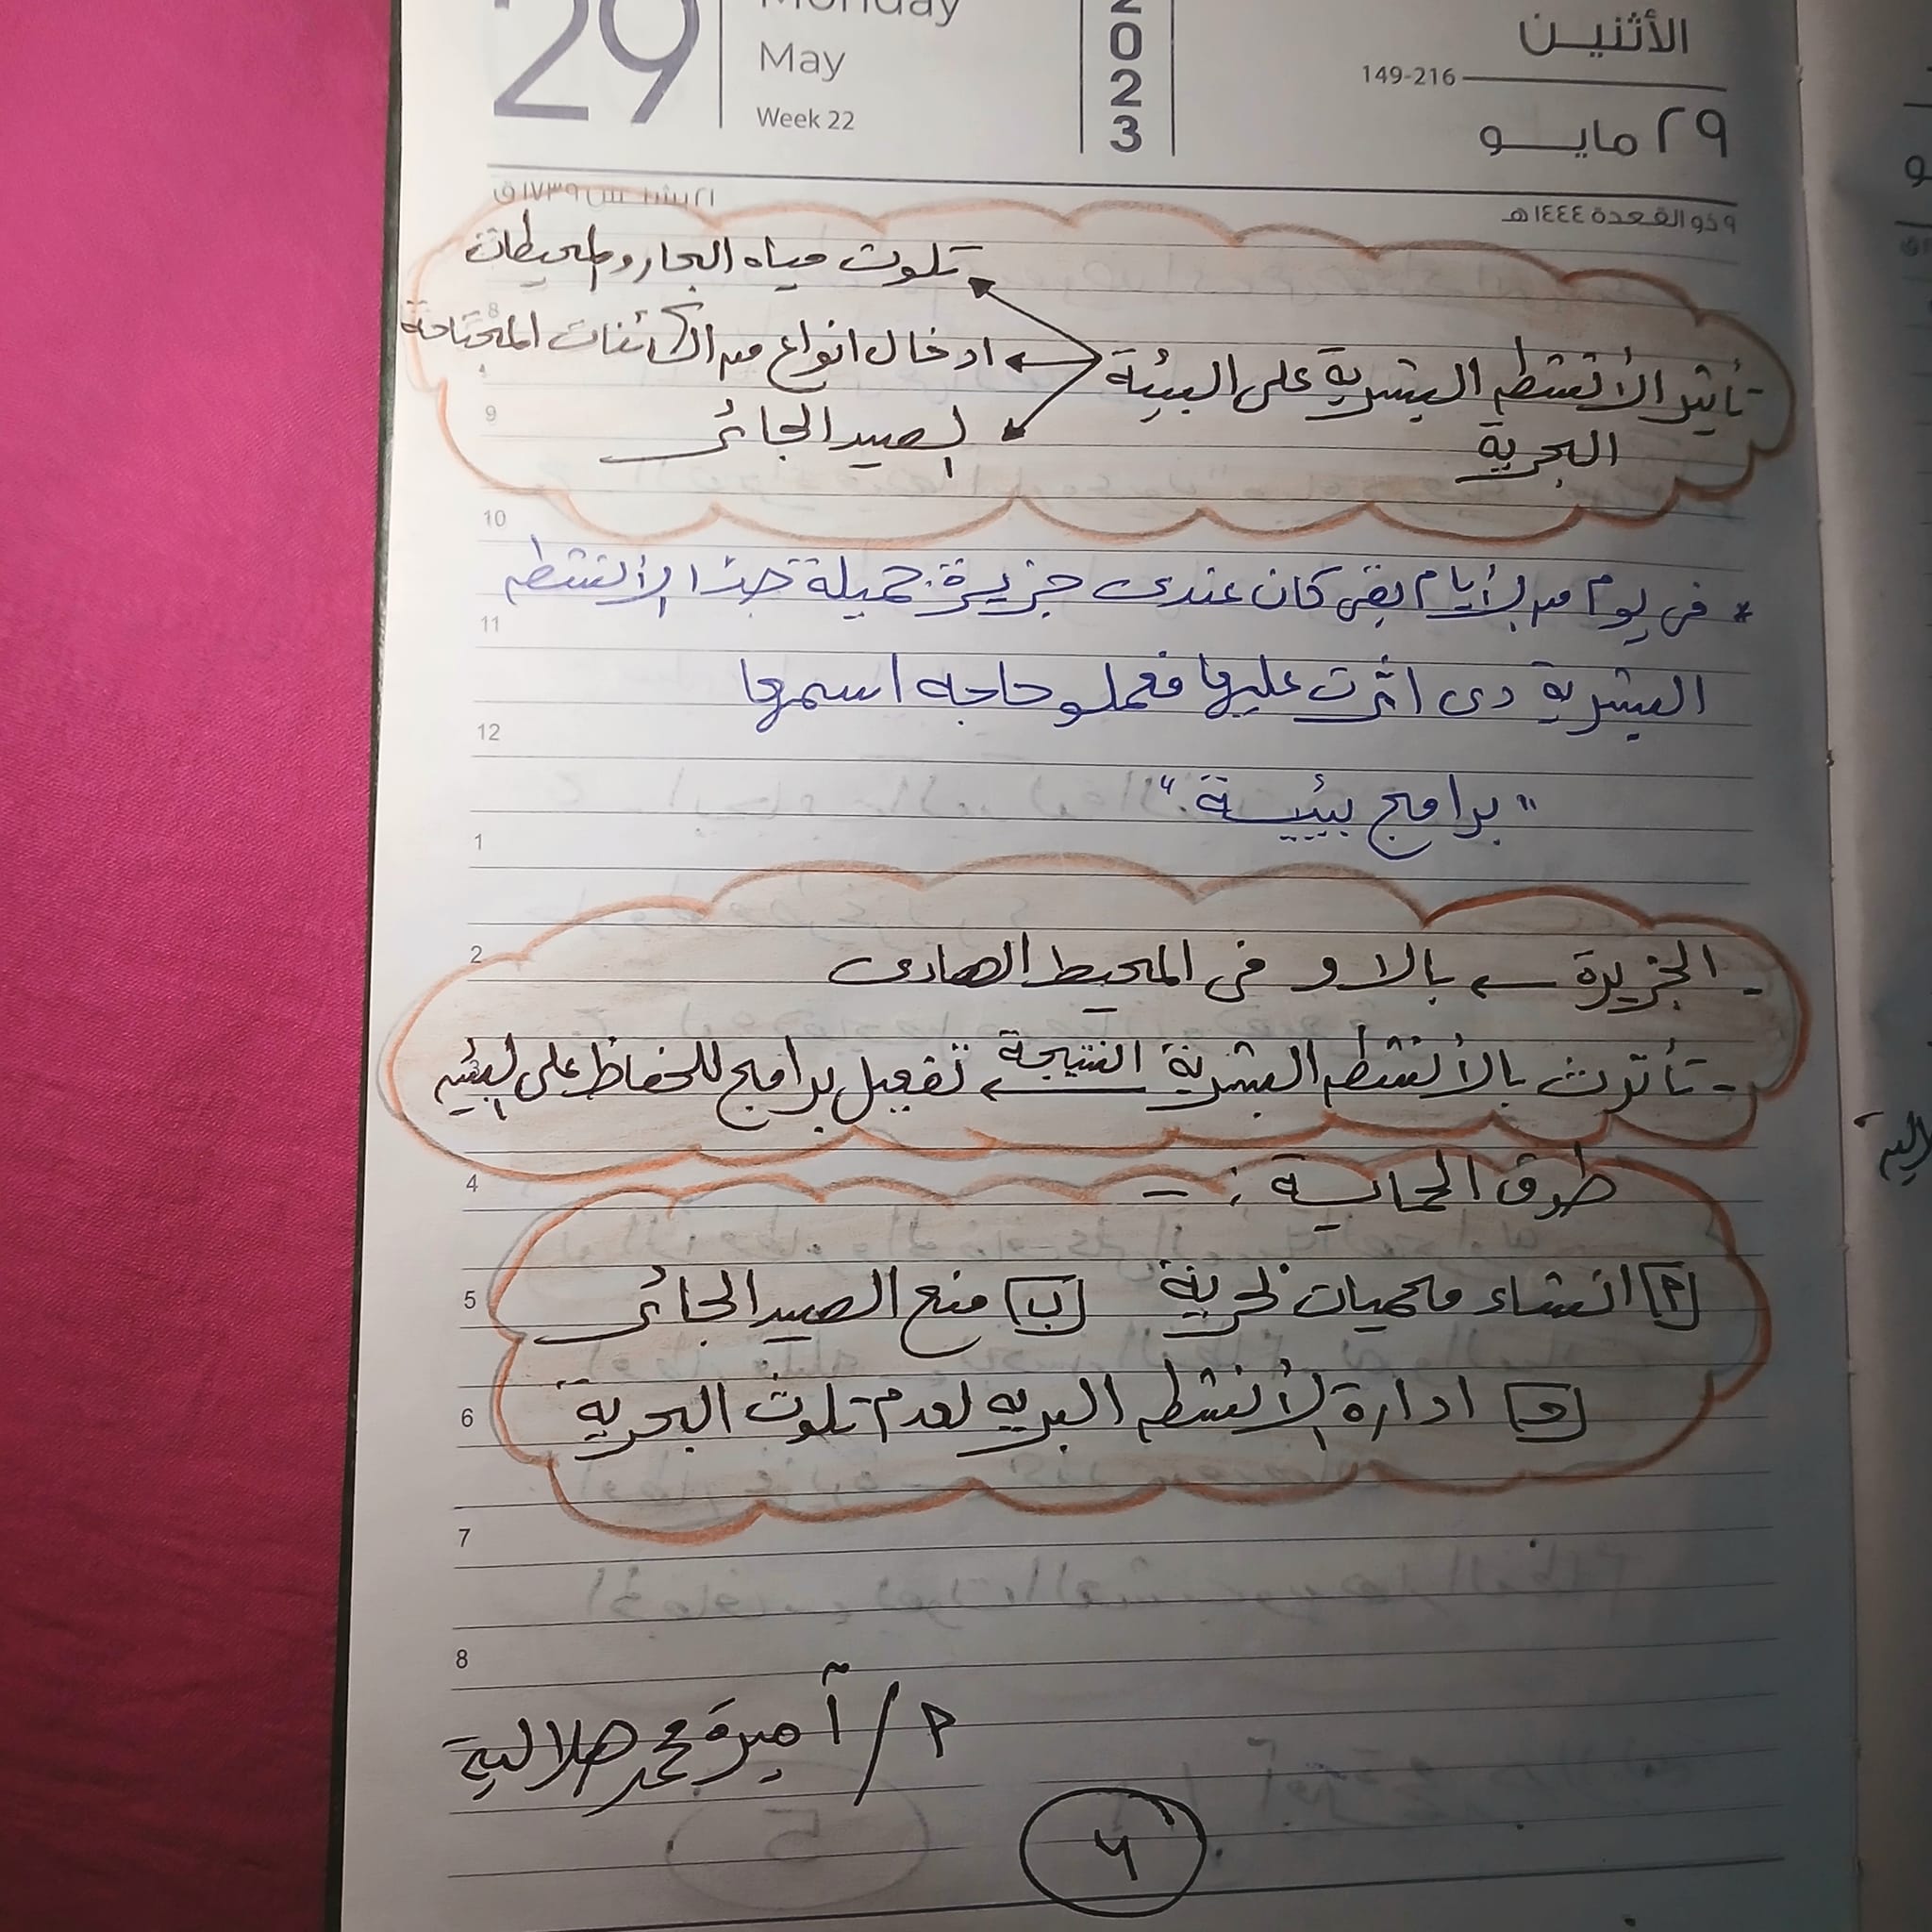 29
Monday
May
Week 22
2023
الأثنين
149-216
٢٩ مايو
٩ ذو القعدة ١٤٤٤هـ
٢١ بشنس ١٧٣٩ق
- تأثير الأنشطه البشرية على البيئة
البحرية
تلوث مياه البحار والمحيطات
ادخال انواع من الكائنات المجتاحة
الصيد الجائر
* فى يوم من الأيام بقى كان عندى جزيرة جميلة جدًا الأنشطه
البشرية دى اثرت عليها فعملو حاجه اسمها
"برامج بيئية"
- الجزيرة ← بالاو فى المحيط الهادى
- تأثرت بالأنشطه البشرية النتيجة ← تفعيل برامج للحفاظ على البيئه
طرق الحماية :-
أ انشاء محميات بحرية ب منع الصيد الجائر
ج ادارة الأنشطه البريه لعدم تلوث البحرية
8
9
10
11
12
1
2
4
5
6
7
8
م/ أميرة محمد هلالية